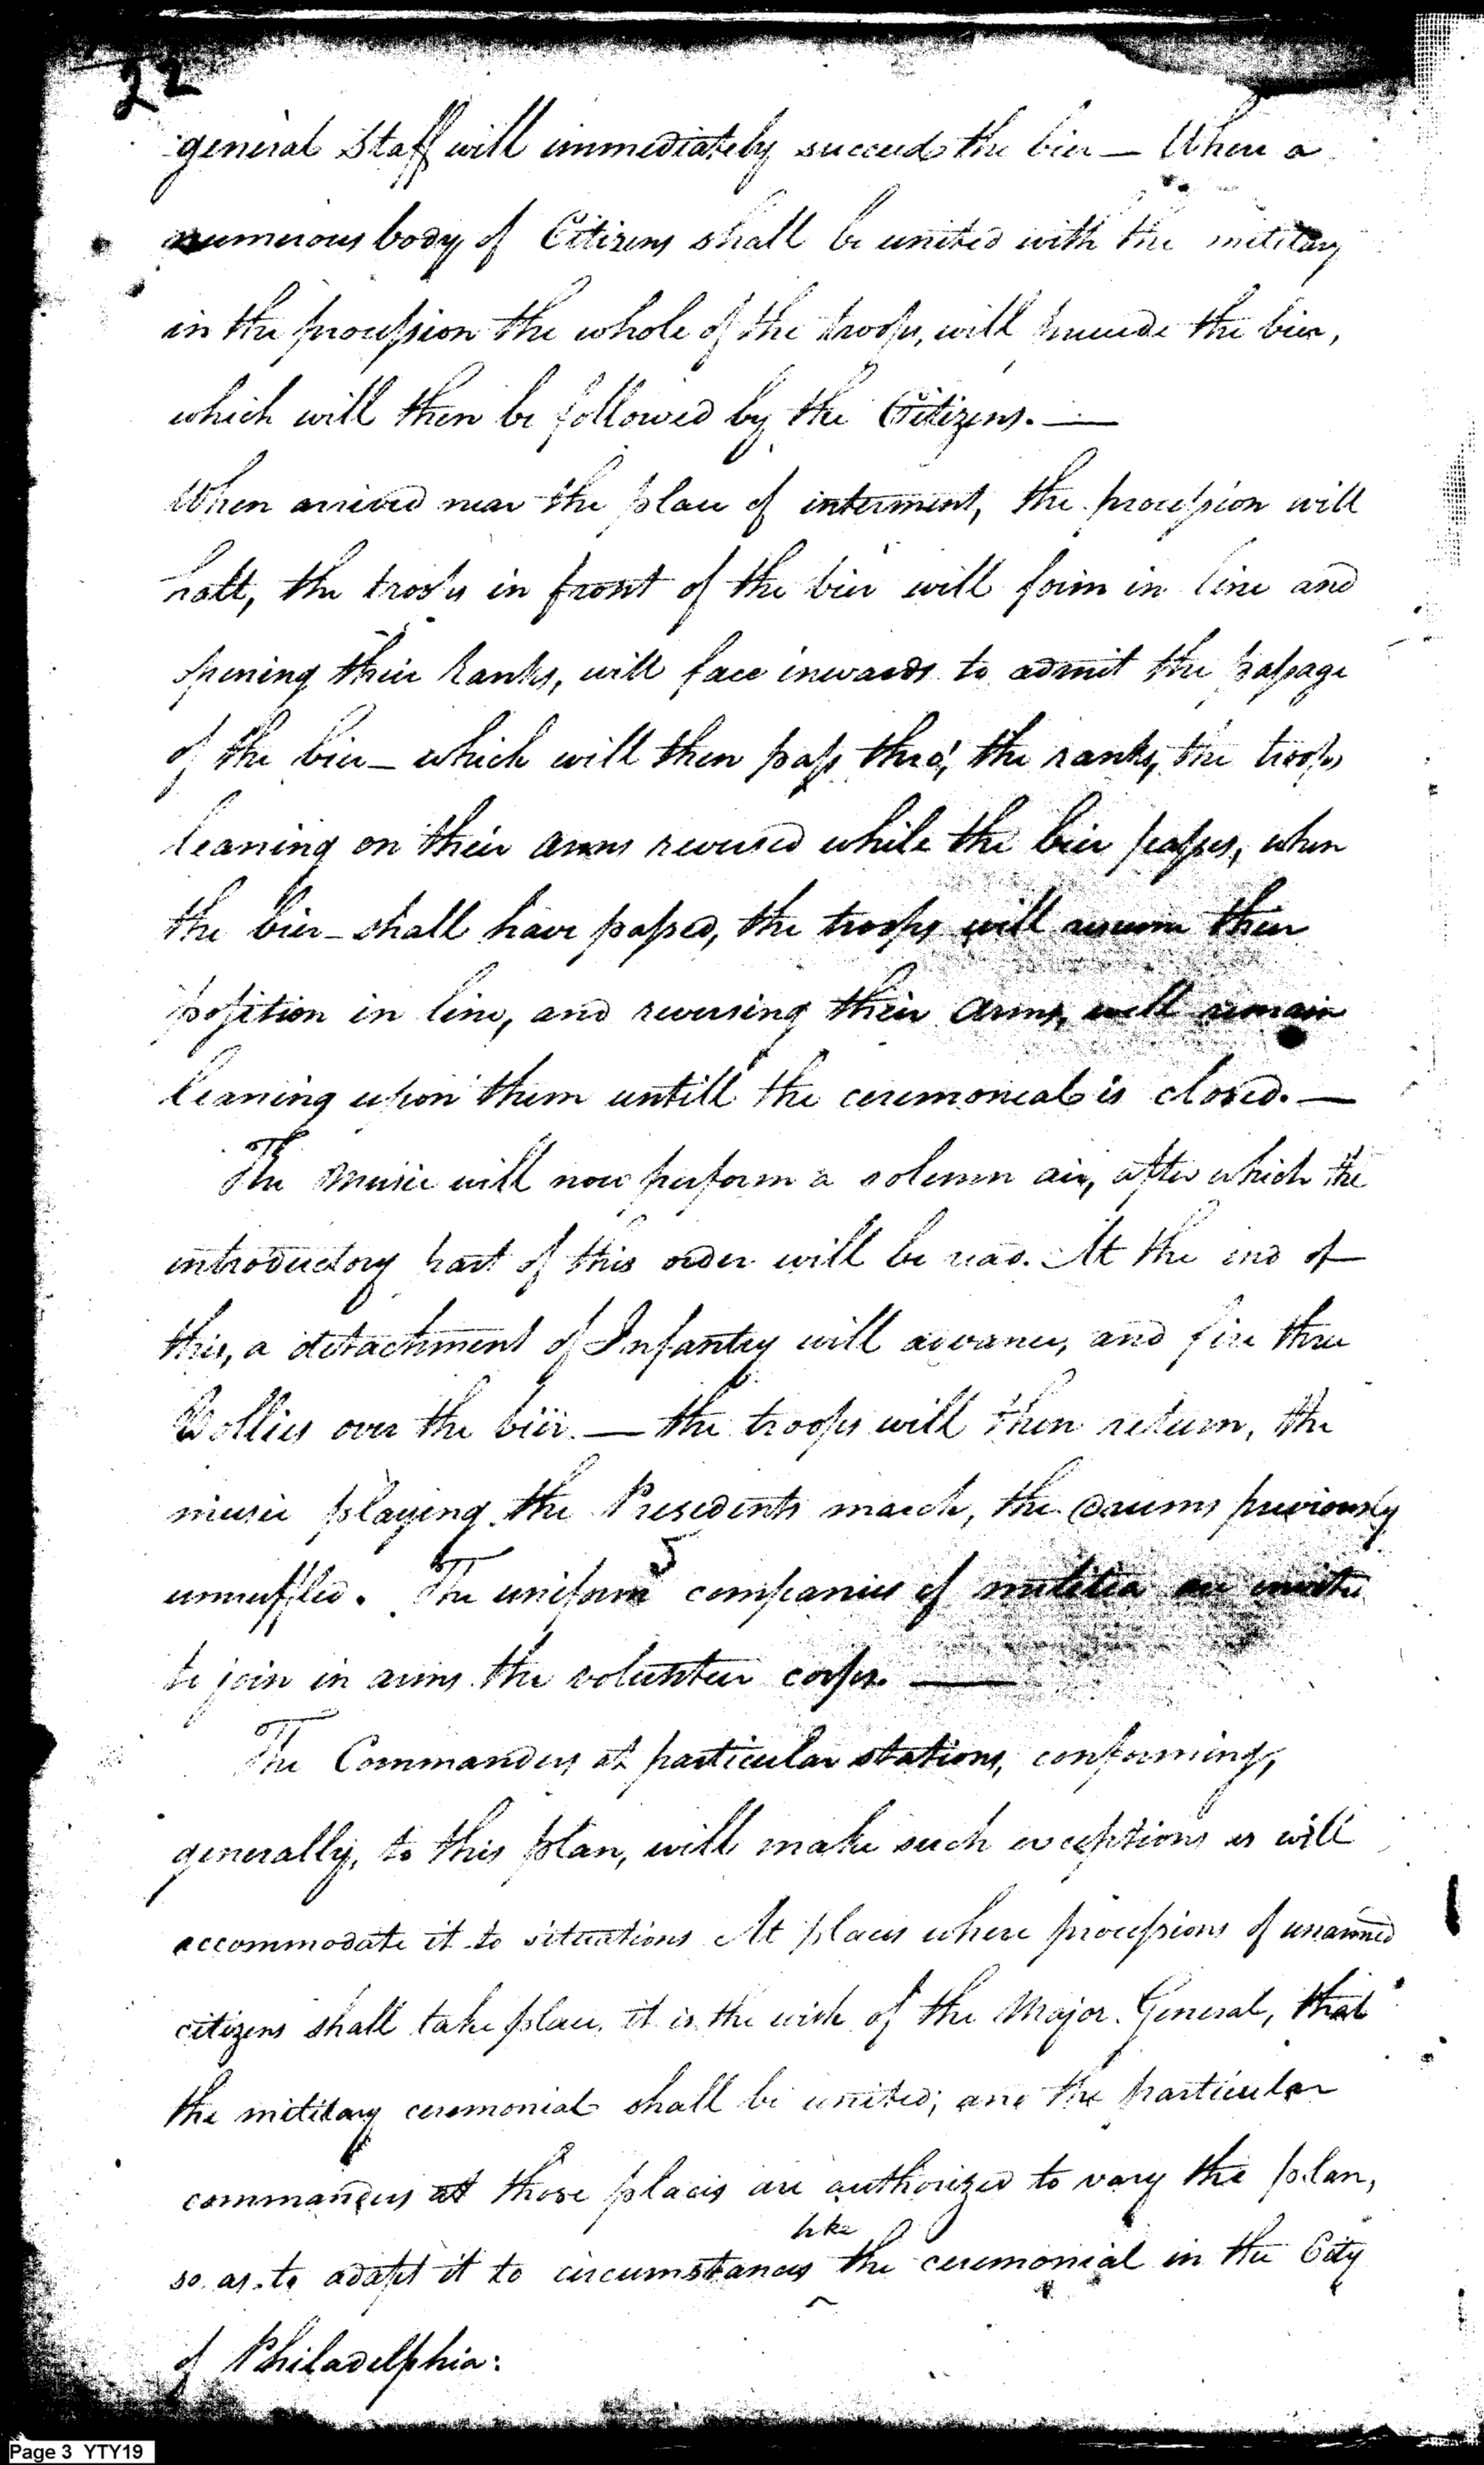 22
general Staff will immediately succeed the bier — When a
numerous body of Citizens shall be united with the military
in the procession the whole of the troops, will precede the bier,
which will then be followed by the Citizens. —
When arrived near the place of interment, the procession will
halt, the troops in front of the bier will form in line and
opening their Ranks, will face inwards to admit the passage
of the bier — which will then pass thro', the ranks, the troops
leaning on their arms reversed while the bier passes, when
the bier — shall have passed, the troops will resume their
position in line, and reversing their arms, will remain
leaning upon them untill the ceremonial is closed. —
The Music will now perform a solemn air, after which the
introductory part of this order will be read. At the end of
this, a detachment of Infantry will advance, and fire three
Vollies over the bier. — the troops will then return, the
music playing the Presidents march, the Drums previously
unmuffled. The uniform companies of militia are invited
to join in arms the volunteer corps. —
The Commanders at particular stations, conforming,
generally, to this plan, will make such exceptions as will
accommodate it to situations At places where processions of unarmed
citizens shall take place, it is the wish of the Major General, that
the military ceremonial shall be united; and the particular
commanders at those places are authorized to vary the plan,
like
so as to adapt it to circumstances ‸ the ceremonial in the City
of Philadelphia:
Page 3 YTY19